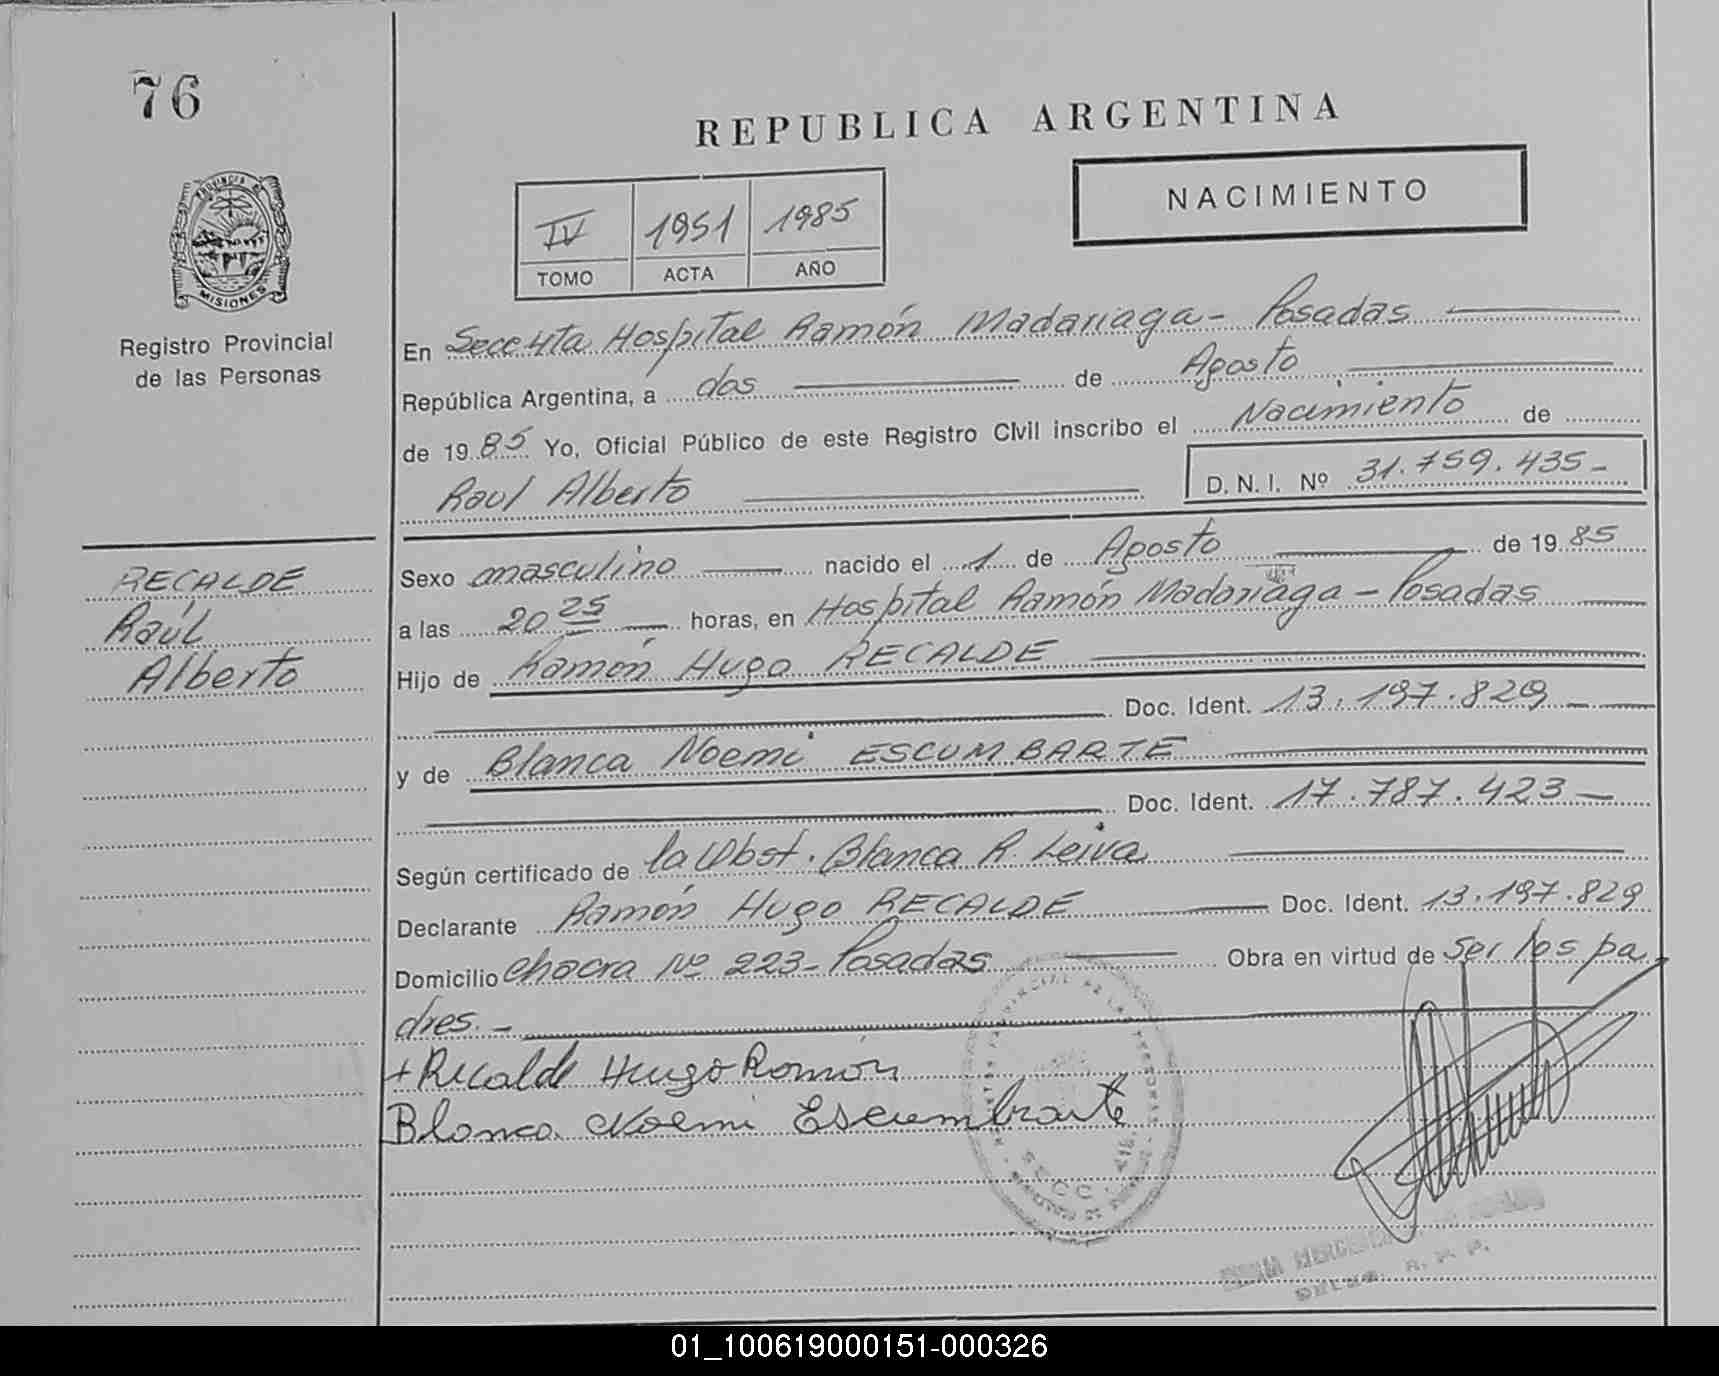 76
REPUBLICA ARGENTINA
NACIMIENTO
IV 1951 1985
TOMO ACTA AÑO
PROVINCIA DE
MISIONES
Registro Provincial
de las Personas
En Secc 4ta Hospital Ramón Madariaga - Posadas
República Argentina, a dos de Agosto
de 1985 Yo, Oficial Público de este Registro Civil inscribo el Nacimiento de
Raul Alberto D. N. I. Nº 31.759.435-
RECALDE
Raúl
Alberto
Sexo masculino nacido el 1 de Agosto de 1985
a las 20 25 horas, en Hospital Ramón Madariaga - Posadas
Hijo de Ramón Hugo RECALDE
Doc. Ident. 13.197.829
y de Blanca Noemi ESCUMBARTE
Doc. Ident. 17.787.423
Según certificado de la Obst. Blanca R. Leiva
Declarante Ramón Hugo RECALDE Doc. Ident. 13.197.829
Domicilio Chacra Nº 223 - Posadas Obra en virtud de ser los pa
dres.-
+Recalde Hugo Ramón
Blanca Noemi Escumbarte
SECC
R. P. P.
01_100619000151-000326